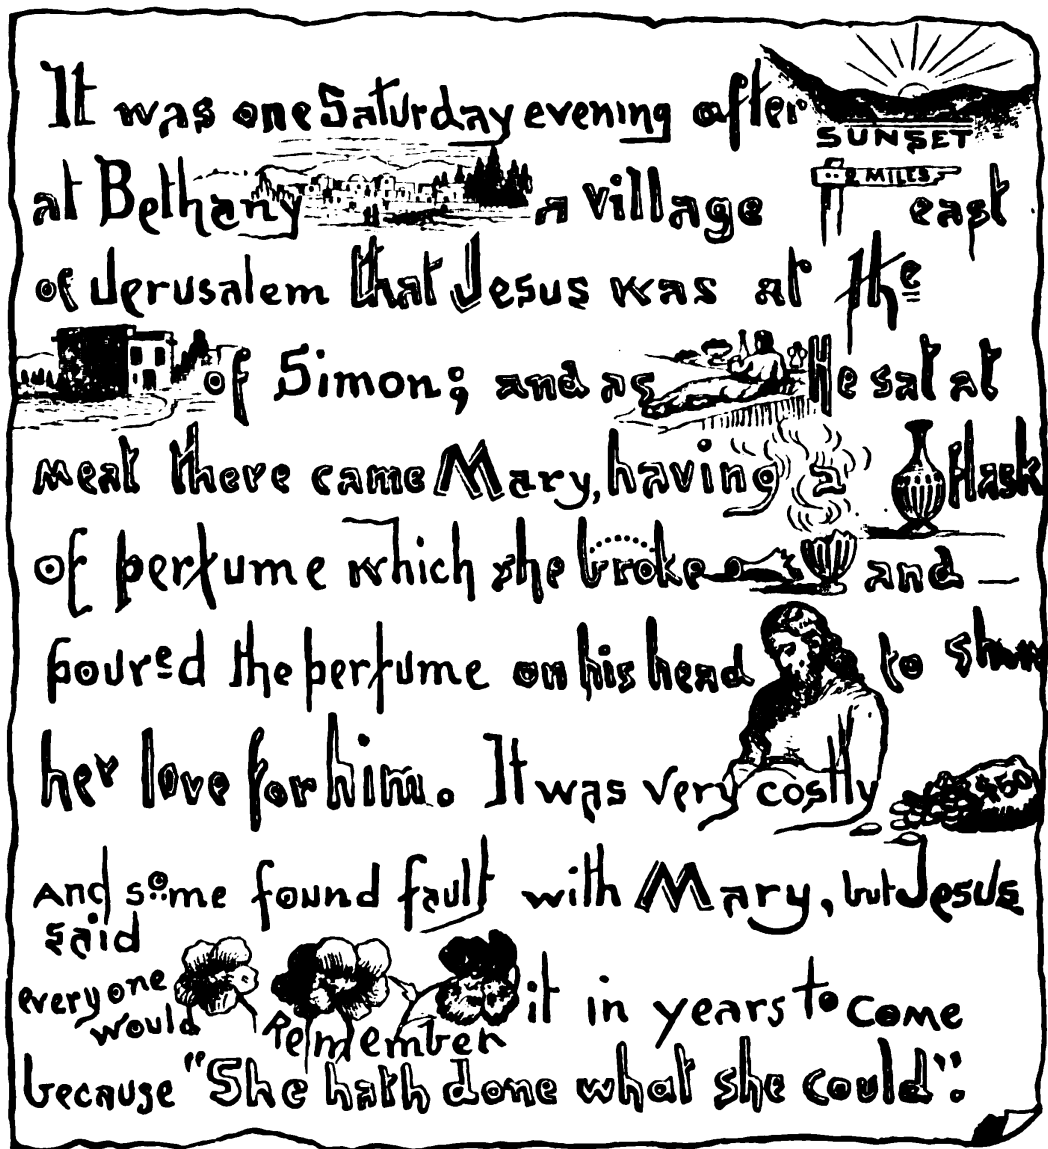 It was one Saturday evening after SUNSET
at Bethany a village 2 MILES east
of Jerusalem that Jesus was at the
of Simon; and as He sat at
meat there came Mary, having a flask
of perfume which she broke and
poured the perfume on his head to show
her love for him. It was very costly $50
And some found fault with Mary, but Jesus
said
everyone would Remember it in years to come
because "She hath done what she could".